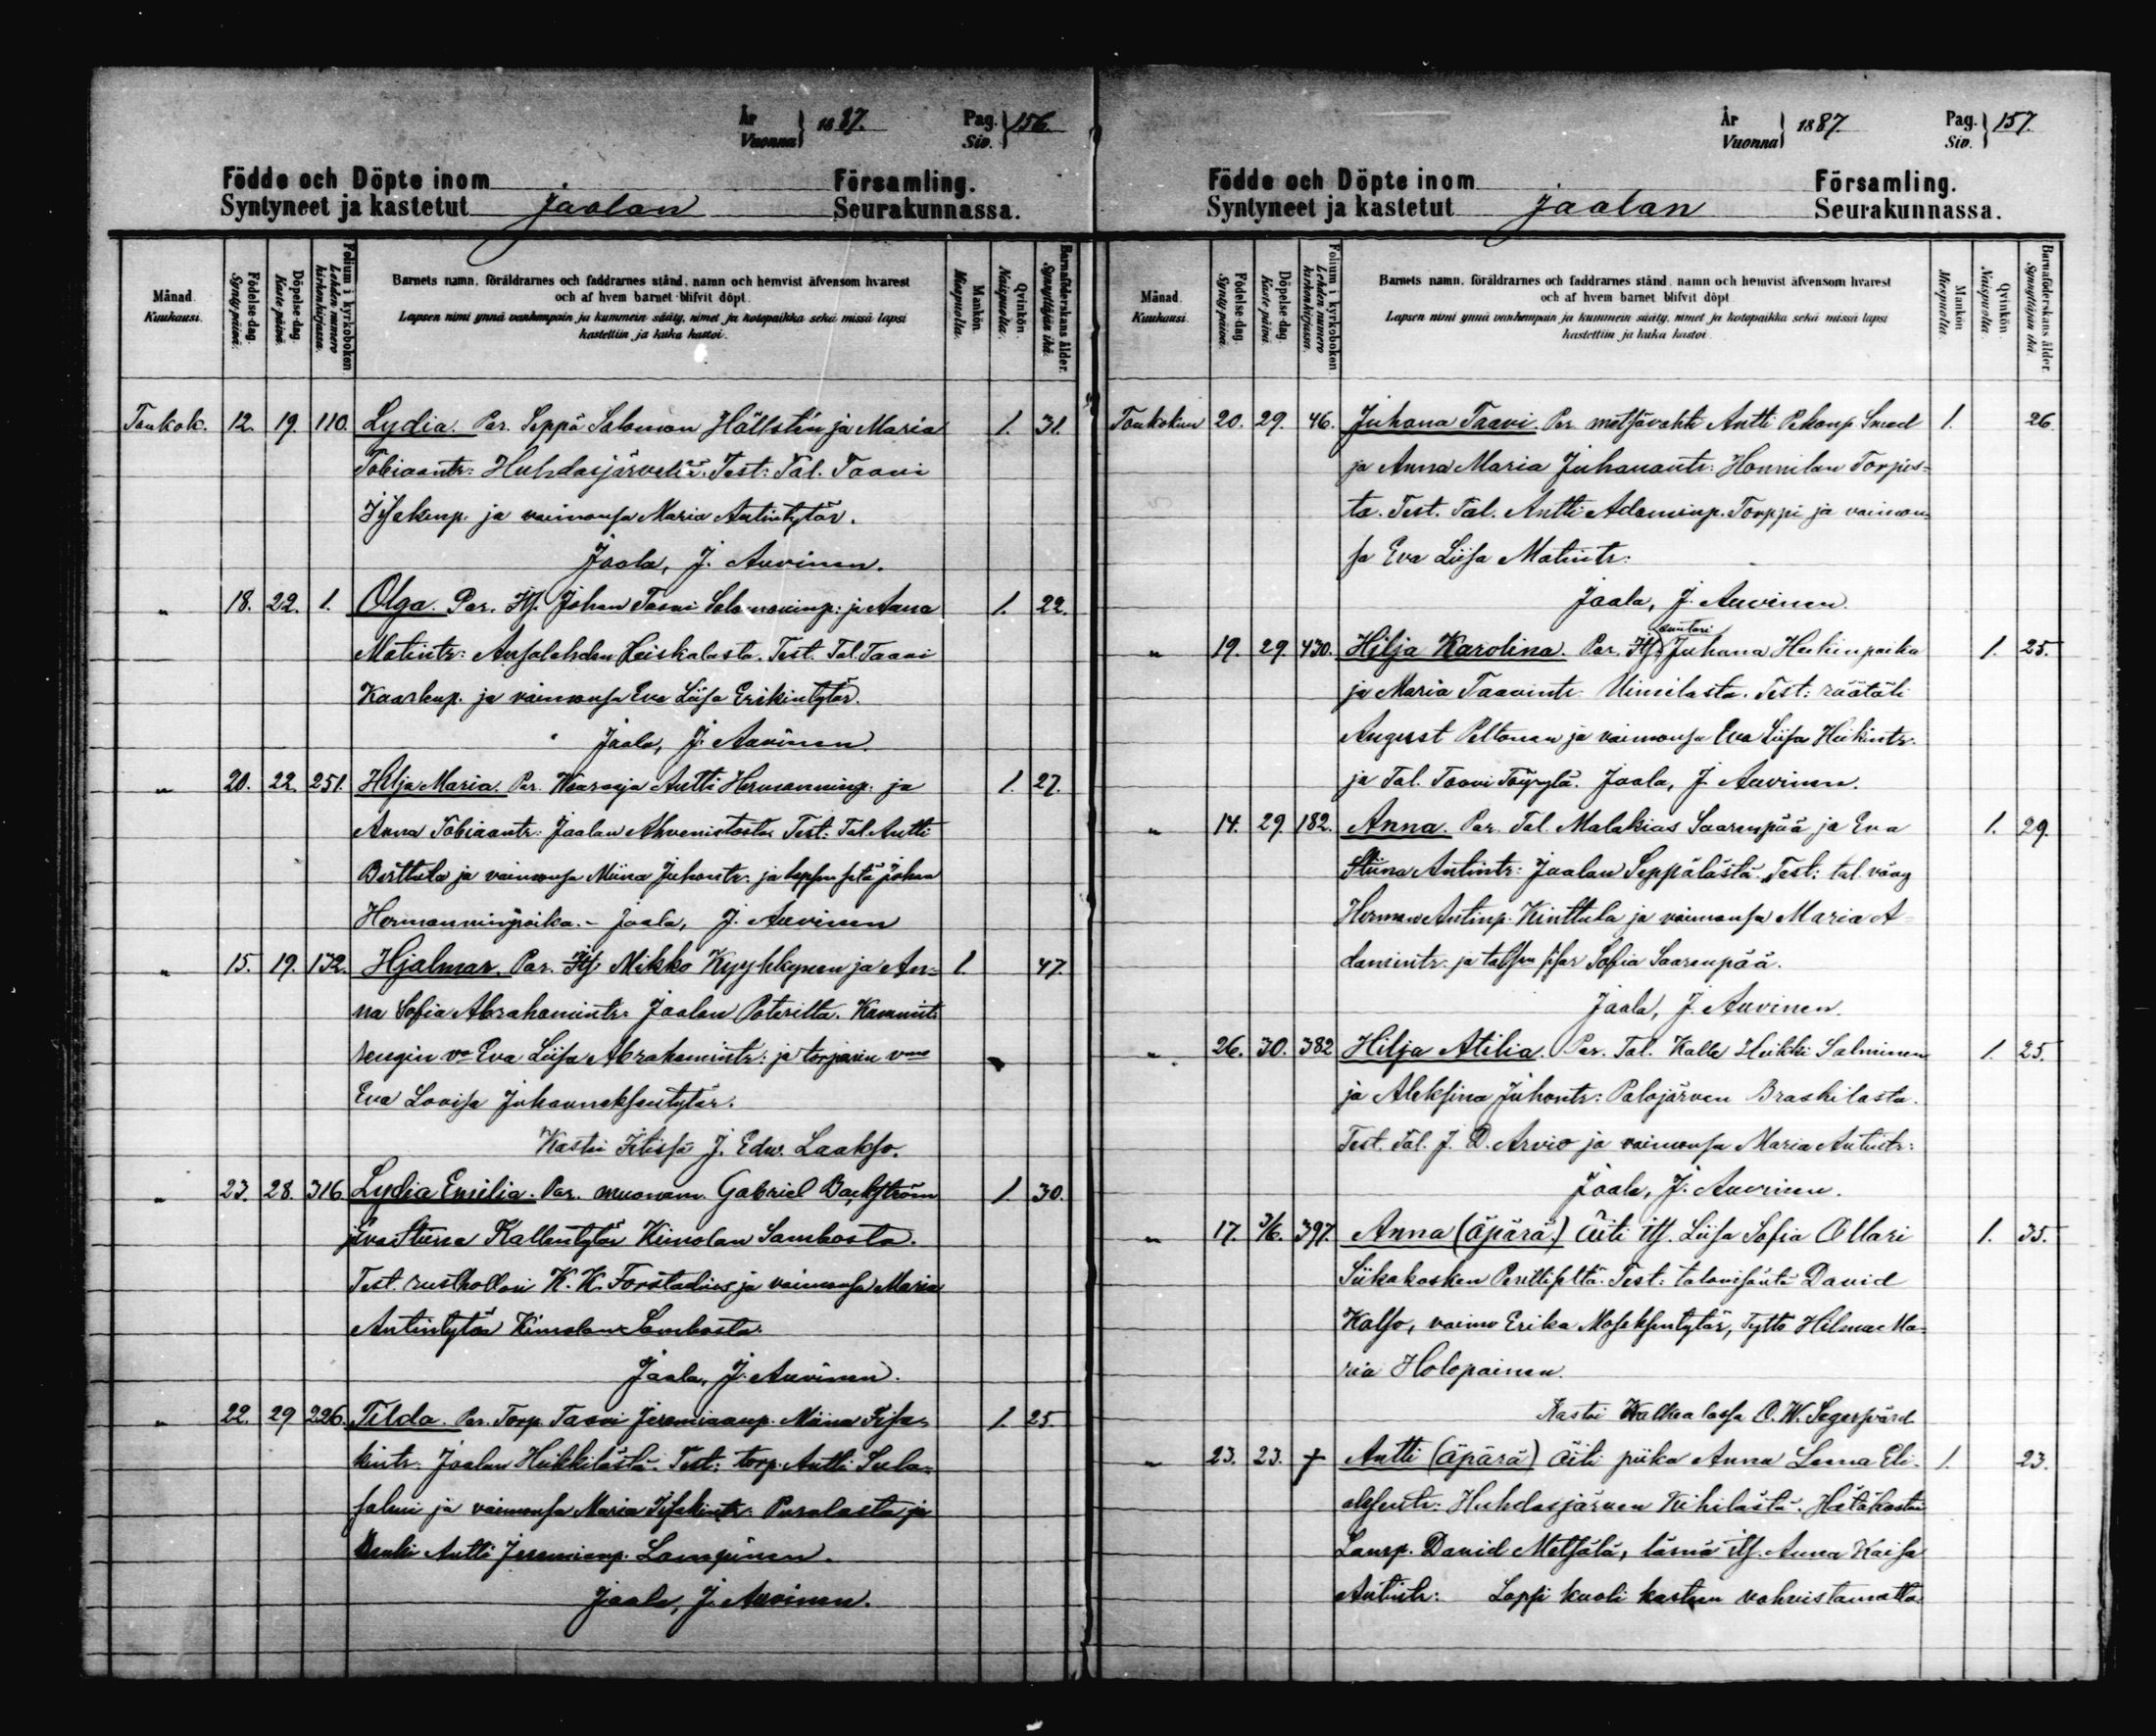 År
Vuonna } 1887. Pag.
Siv. } 156.
Födde och Döpte inom Församling.
Syntyneet ja kastetut Jaalan Seurakunnassa.
Månad. Kuukausi. Födelse-dag. Syntypäivä. Döpelse-dag. Kastepäivä. Folium i kyrkoboken Lehden numero kirkonkirjassa. Barnets namn, föräldrarnes och faddrarnes stånd, namn och hemvist äfvensom hvarest
och af hvem barnet blifvit döpt.
Lapsen nimi ynnä vanhempain ja kummein sääty, nimet ja kotopaikka sekä missä lapsi
kastettiin ja kuka kastoi.
Mankön. Miespuolta. Qvinkön. Naispuolta. Barnaföderskans ålder. Synnyttäjän ikä.
Toukok. 12. 19. 110. Lydia. Par. Seppä Salomon Hällsten ja Maria 1. 31.
Tobiaantr: Huhdasjärveltä. Test: Tal. Taavi
Iisakinp. ja vaimonsa Maria Antintytär.
Jaala, J. Auvinen.
" 18. 22. 1. Olga. Par. Its. Johan Taavi Salomoninp: ja Anna 1. 22.
Matintr: Ansalahden Heiskalasta. Test. Tal. Taavi
Kaarlenp. ja vaimonsa Eva Liisa Erikintytär.
Jaala, J. Auvinen.
" 20. 22. 251. Hilja Maria. Par. Waaraaja Antti Hermanninp. ja 1. 27.
Anna Tobiaantr: Jaalan Ahvenistosta Test: Tal. Antti
Berttula ja vaimonsa Miina Juhontr. ja lapsen setä Johan
Hermanninpoika. - Jaala, J. Auvinen
" 15. 19. 132. Hjalmar. Par. Its. Mikko Kyyhkynen ja An= 1. 47.
na Sofia Abrahamintr: Jaalan Poterilta. Kummit:
rengin vmo Eva Liisa Abrahamintr: ja torparin vmo
Eva Lovisa Juhanneksentytär.
Kastoi Iitissä J. Edw. Laakso.
" 23. 28. 316. Lydia Emilia. Par. muonam. Gabriel Backström 1. 30.
ja Eva Stiina Kallentytär Kimolan Sambosta.
Test. rusthollari K. H. Forstadius ja vaimonsa Maria
Antintytär Kimolan Sambosta.
Jaala, J. Auvinen.
" 22. 29 226. Tilda. Par. Torp. Taavi Jeremiaanp. Miina Iisa= 1. 25.
kintr. Jaalan Heikkilästä. Test: torp. Antti Sula=
salmi ja vaimonsa Maria Iisakintr: Puralasta ja
Renki Antti Jeremianp. Lampinen.
Jaala, J. Auvinen.
År
Vuonna } 1887. Pag.
Siv. } 157.
Födde och Döpte inom Församling.
Syntyneet ja kastetut Jaalan Seurakunnassa.
Månad. Kuukausi. Födelse-dag. Syntypäivä. Döpelse-dag. Kastepäivä. Folium i kyrkoboken Lehden numero kirkonkirjassa. Barnets namn, föräldrarnes och faddrarnes stånd, namn och hemvist äfvensom hvarest
och af hvem barnet blifvit döpt.
Lapsen nimi ynnä vanhempain ja kummein sääty, nimet ja kotopaikka sekä missä lapsi
kastettiin ja kuka kastoi.
Mankön. Miespuolta. Qvinkön. Naispuolta. Barnaföderskans ålder. Synnyttäjän ikä.
Toukokuu 20. 29. 46. Juhana Taavi. Par. metsävahti Antti Pekanp. Smed 1. 26
ja Anna Maria Juhanantr: Honnilan Torpis=
ta. Test. Tal. Antti Adaminp. Torppi ja vaimon=
sa Eva Liisa Matintr:
Jaala, J. Auvinen.
" 19. 29. 430. Hilja Karolina. Par. Its. suutari Juhana Heikinpoika 1. 25.
ja Maria Taavintr. Uimilasta. Test: räätäli
August Peltonen ja vaimonsa Eva Liisa Heikintr.
ja Tal. Taavi Töyrylä. Jaala, J. Auvinen.
" 14. 29. 182. Anna. Par. Tal. Malakias Saarenpää ja Eva 1. 29.
Stiina Antintr: Jaalan Seppälästä. Test: tal. vävy
Herman Antinp. Kinttula ja vaimonsa Maria A=
damintr. ja talon sisar Sofia Saarenpää.
Jaala, J. Auvinen.
" 26. 30. 382 Hilja Atilia. Par. Tal. Kalle Heikki Salminen 1. 25.
ja Aleksina Juhontr: Palojärven Braskilasta.
Test. Tal. J. D. Arvio ja vaimonsa Maria Antintr:
Jaala, J. Auvinen.
" 17. 3/6. 397. Anna (äpärä.) Äiti its. Liisa Sofia Ollari 1. 35.
Siikakosken Perttiltä. Test: talonisäntä David
Kalso, vaimo Erika Moseksentytär, Tyttö Hilma Ma=
ria Holopainen.
Kastoi Walkealassa O. W. Segersvärd
" 23. 23. + Antti (äpärä) Äiti piika Anna Leena Eli= 1. 23.
aksentr: Huhdasjärven Kihilästä. Hätäkastoi
Lamp. David Metsälä, läsnä its. Anna Kaisa
Antintr: Lapsi kuoli kasteen vahvistamatta